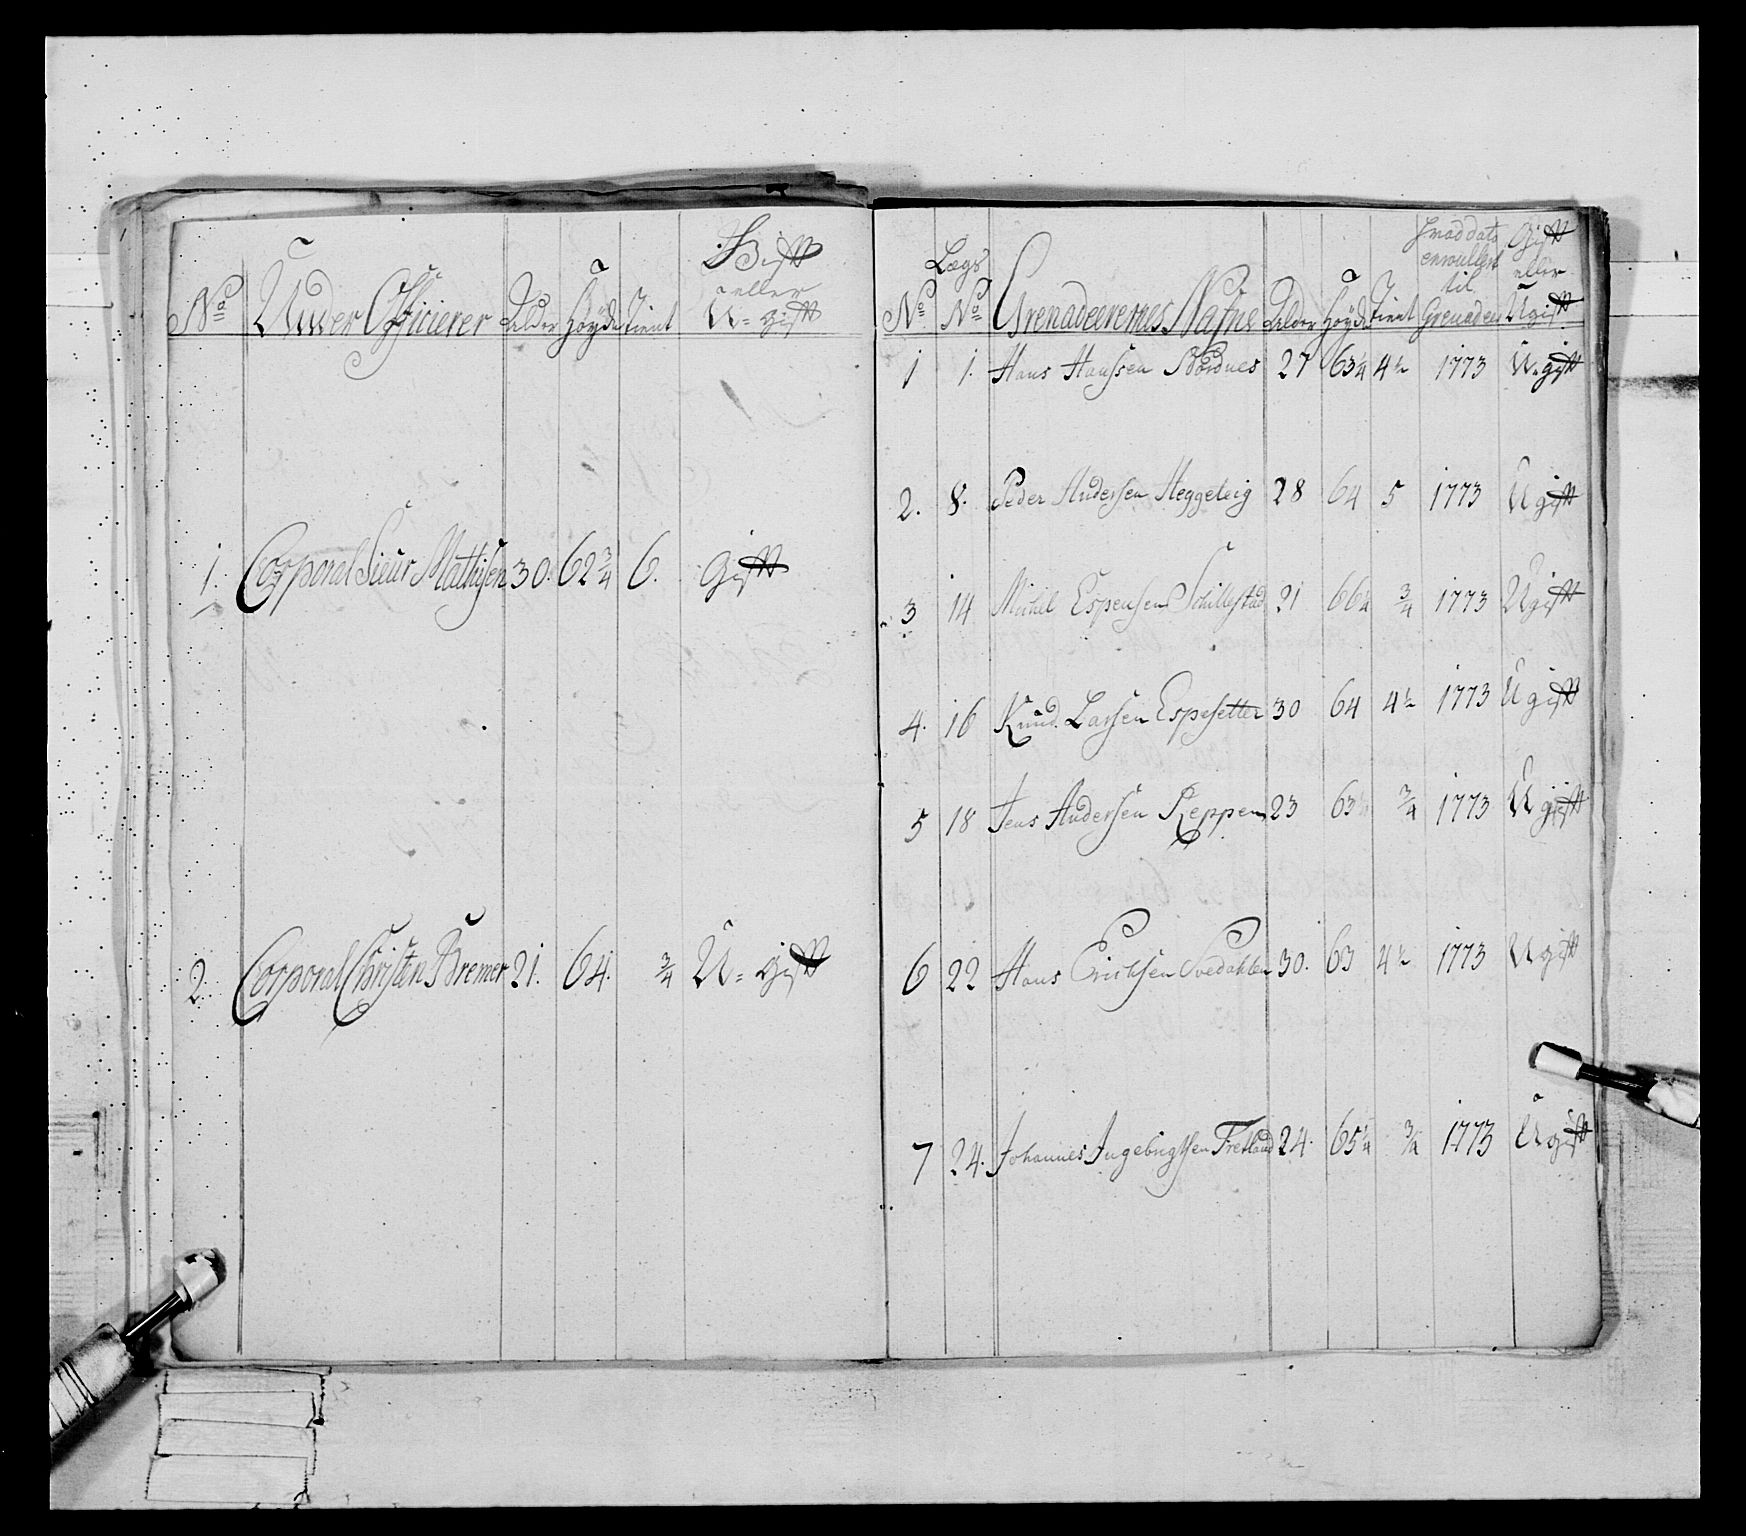 Gift
eller
No Under Officierer Alder Høyde tient U=gift
1. Corporal Siur Mathisen 30. 62 3/4 6. Gift
2. Corporal Christen Bremer 21. 64. 3/4 U=gift
Lægs
No No Grenadeerernes Nafne Alder Høyde tient
Hvad dato enroullert til Grenadeer
Gift eller Ugift
1 1. Hans Hanssen Nordnes 27 63 1/4 4 1/2 1773 U=gift
2. 8. Peder Andersen Heggeleig 28 64 5 1773 Ugift
3 14 Michel Espensen Schillestad 21 66 1/4 3/4 1773 Ugift
4. 16 Knud Larsen Espesetter 30 64 4 1/2 1773 Ugift
5 18 Jens Andersen Reppen 23 63 3/4 1773 Ugift
6 22 Hans Erichsen Svedahlen 30. 63 4 1/2 1773 Ugift
7 24. Johannes Ingebrigtsen Fretland 24. 65 1/4 3/4 1773 Ugift